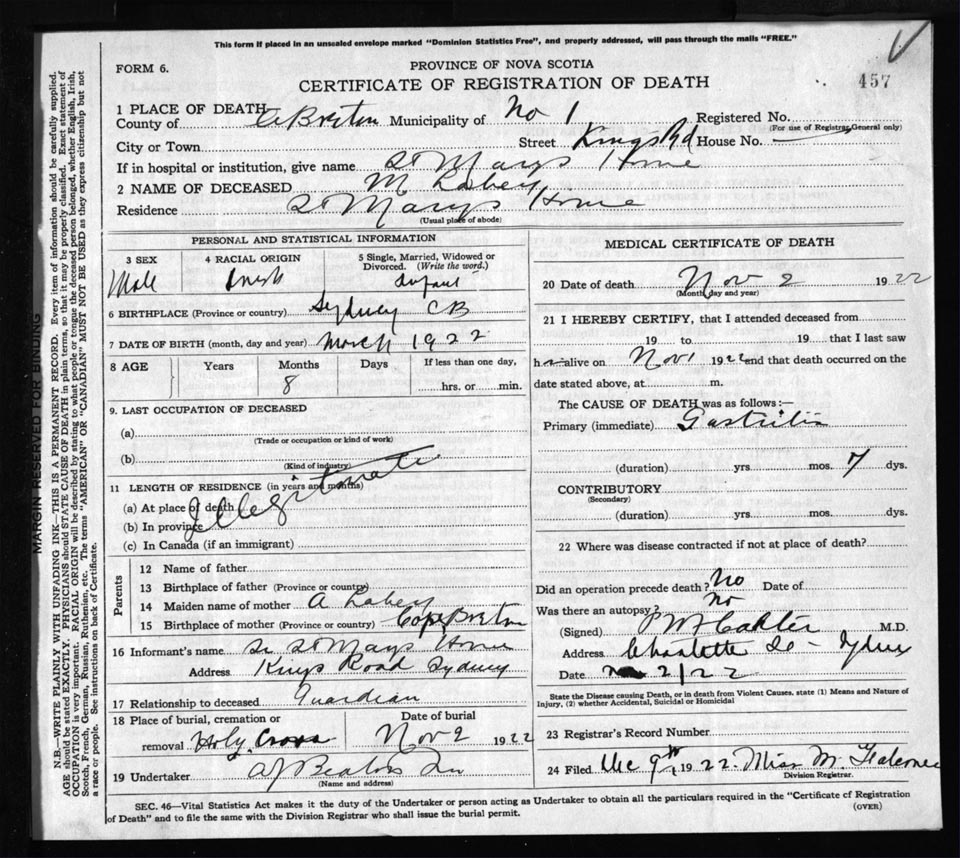 This form if placed in an unsealed envelope marked "Dominion Statistics Free", and properly addressed, will pass through the mails "FREE."
FORM 6.
PROVINCE OF NOVA SCOTIA
CERTIFICATE OF REGISTRATION OF DEATH
457
1 PLACE OF DEATH
County of C Breton Municipality of No 1 Registered No.
(For use of Registrar General only)
City or Town Street Kings Rd House No. —
If in hospital or institution, give name St Marys Home
2 NAME OF DECEASED M
Residence St Marys Home
(Usual place of abode)
PERSONAL AND STATISTICAL INFORMATION
3 SEX 4 RACIAL ORIGIN 5 Single, Married, Widowed or Divorced. (Write the word.)
Male Irish Infant
6 BIRTHPLACE (Province or country) Sydney CB
7 DATE OF BIRTH (month, day and year) March 1922
8 AGE Years Months Days If less than one day,
8 hrs. or min.
9. LAST OCCUPATION OF DECEASED
(a)
(Trade or occupation or kind of work)
(b)
(Kind of industry)
Illegitimate
11 LENGTH OF RESIDENCE (in years and months)
(a) At place of death
(b) In province
(c) In Canada (if an immigrant)
Parents
12 Name of father
13 Birthplace of father (Province or country)
14 Maiden name of mother A
15 Birthplace of mother (Province or country) Cape Breton
16 Informant's name St Marys Home
Address Kings Road Sydney
17 Relationship to deceased Guardian
18 Place of burial, cremation or removal Holy Cross
Date of burial Nov 2 1922
19 Undertaker A J Beaton
(Name and address)
MEDICAL CERTIFICATE OF DEATH
20 Date of death Nov 2 1922
(Month, day and year)
21 I HEREBY CERTIFY, that I attended deceased from
19 to 19 that I last saw
h alive on Nov 1 1922 and that death occurred on the
date stated above, at m.
The CAUSE OF DEATH was as follows:—
Primary (immediate) Gastritis
(duration) yrs. mos. 7 dys.
CONTRIBUTORY
(Secondary)
(duration) yrs. mos. dys.
22 Where was disease contracted if not at place of death?
Did an operation precede death? No Date of
Was there an autopsy? No
(Signed) M.D.
Address Charlotte St - Sydney
Date 2/22
State the Disease causing Death, or in death from Violent Causes, state (1) Means and Nature of
Injury, (2) whether Accidental, Suicidal or Homicidal
23 Registrar's Record Number
24 Filed Dec 9th 1922. Miss M.
Division Registrar.
SEC. 46—Vital Statistics Act makes it the duty of the Undertaker or person acting as Undertaker to obtain all the particulars required in the "Certificate of Registration
of Death" and to file the same with the Division Registrar who shall issue the burial permit.
(OVER)
MARGIN RESERVED FOR BINDING
N.B.—WRITE PLAINLY WITH UNFADING INK—THIS IS A PERMANENT RECORD. Every item of information should be carefully supplied.
AGE should be stated EXACTLY. PHYSICIANS should STATE CAUSE OF DEATH in plain terms, so that it may be properly classified. Exact statement of
OCCUPATION is very important. RACIAL ORIGIN will be described by stating to what people or tongue the deceased person belonged, whether English, Irish,
Scotch, French, German, Russian, Ruthenian, etc. The terms "AMERICAN" OR "CANADIAN" MUST NOT BE USED as they express citizenship but not
a race or people. See instructions on back of Certificate.